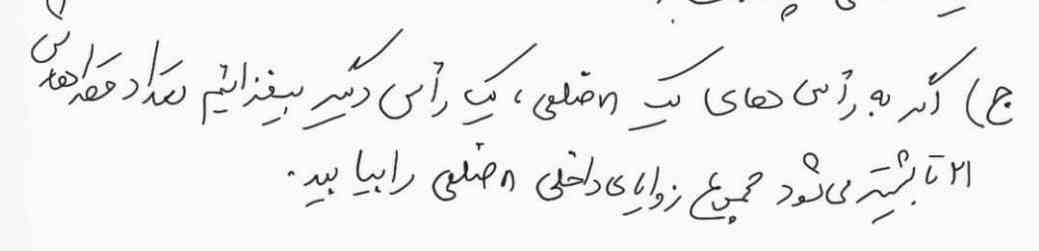 ج) اگر به رأس های یک n ضلعی، یک رأس دیگر بیفزائیم تعداد قطرهایش
۲۱ تا بیشتر می شود مجموع زوایای داخلی n ضلعی را بیابید.